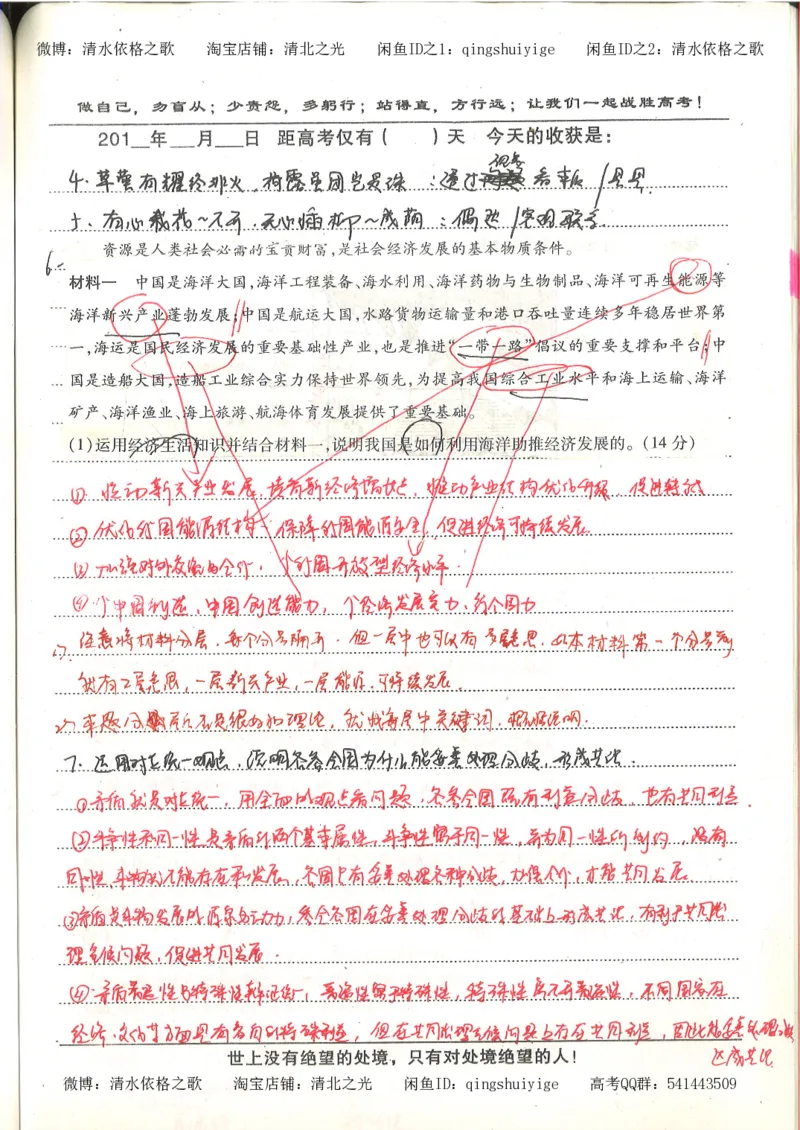 微博：清水依格之歌 淘宝店铺：清北之光 闲鱼ID之1：qingshuiyige 闲鱼ID之2：清水依格之歌
做自己，勿盲从；少责怨，多躬行；站得直，方行远；让我们一起战胜高考！
201__年___月___日 距高考仅有（ ）天 今天的收获是：
4. 草萤有耀终非火，荷露虽团岂是珠：透过现象看本质
5. 有心栽花～不开，无心插柳～成荫：偶然
资源是人类社会必需的宝贵财富，是社会经济发展的基本物质条件。
6.
材料一 中国是海洋大国，海洋工程装备、海水利用、海洋药物与生物制品、海洋可再生能源等
海洋新兴产业蓬勃发展；中国是航运大国，水路货物运输量和港口吞吐量连续多年稳居世界第
一，海运是国民经济发展的重要基础性产业，也是推进“一带一路”倡议的重要支撑和平台；中
国是造船大国，造船工业综合实力保持世界领先，为提高我国综合工业水平和海上运输、海洋
矿产、海洋渔业、海上旅游、航海体育发展提供了重要基础。
(1)运用经济生活知识并结合材料一，说明我国是如何利用海洋助推经济发展的。(14分)
① 推动新兴产业发展，培育新经济增长点，推动产业结构优化升级，促进转
② 优化我国能源结构，保障我国能源安全，促进经济可持续发展
③ 加强对外交流与合作，个我国开放型经济水平.
④ 个中国制造，中国创造能力，个经济发展实力
注意将材料分层，每个分号隔开，但一层中也可以有多层意思，如本材料第一个分号前
就有2层意思，一层新兴产业，一层能源，可持续发展。
7. 运用对立统一观点，说明各参会国为什么能妥善处理分歧，形成共识.
①矛盾就是对立统一，用全面的观点看问题，各参会国既有利益分歧，也有共同利益.
②斗争性和同一性是矛盾的两个基本属性，斗争性寓于同一性，并为同一性所制约，没有
同一性，斗争性就不能存在和发展，各国只有妥善处理各种分歧，加强合作，才能共同发展
③矛盾是事物发展的源泉与动力，参会各国在妥善处理分歧的基础上形成共识，有利于共同治
理气候问题，促进共同发展.
④矛盾普遍性与特殊性辩证统一，普遍性寓于特殊性，特殊性离不开普遍性，不同国家在
经济、文化等方面具有各自的特殊利益，但在共同治理气候问题上存在共同利益，因此能妥善处理分歧
达成共识
世上没有绝望的处境，只有对处境绝望的人！
微博：清水依格之歌 淘宝店铺：清北之光 闲鱼ID：qingshuiyige 高考QQ群：541443509